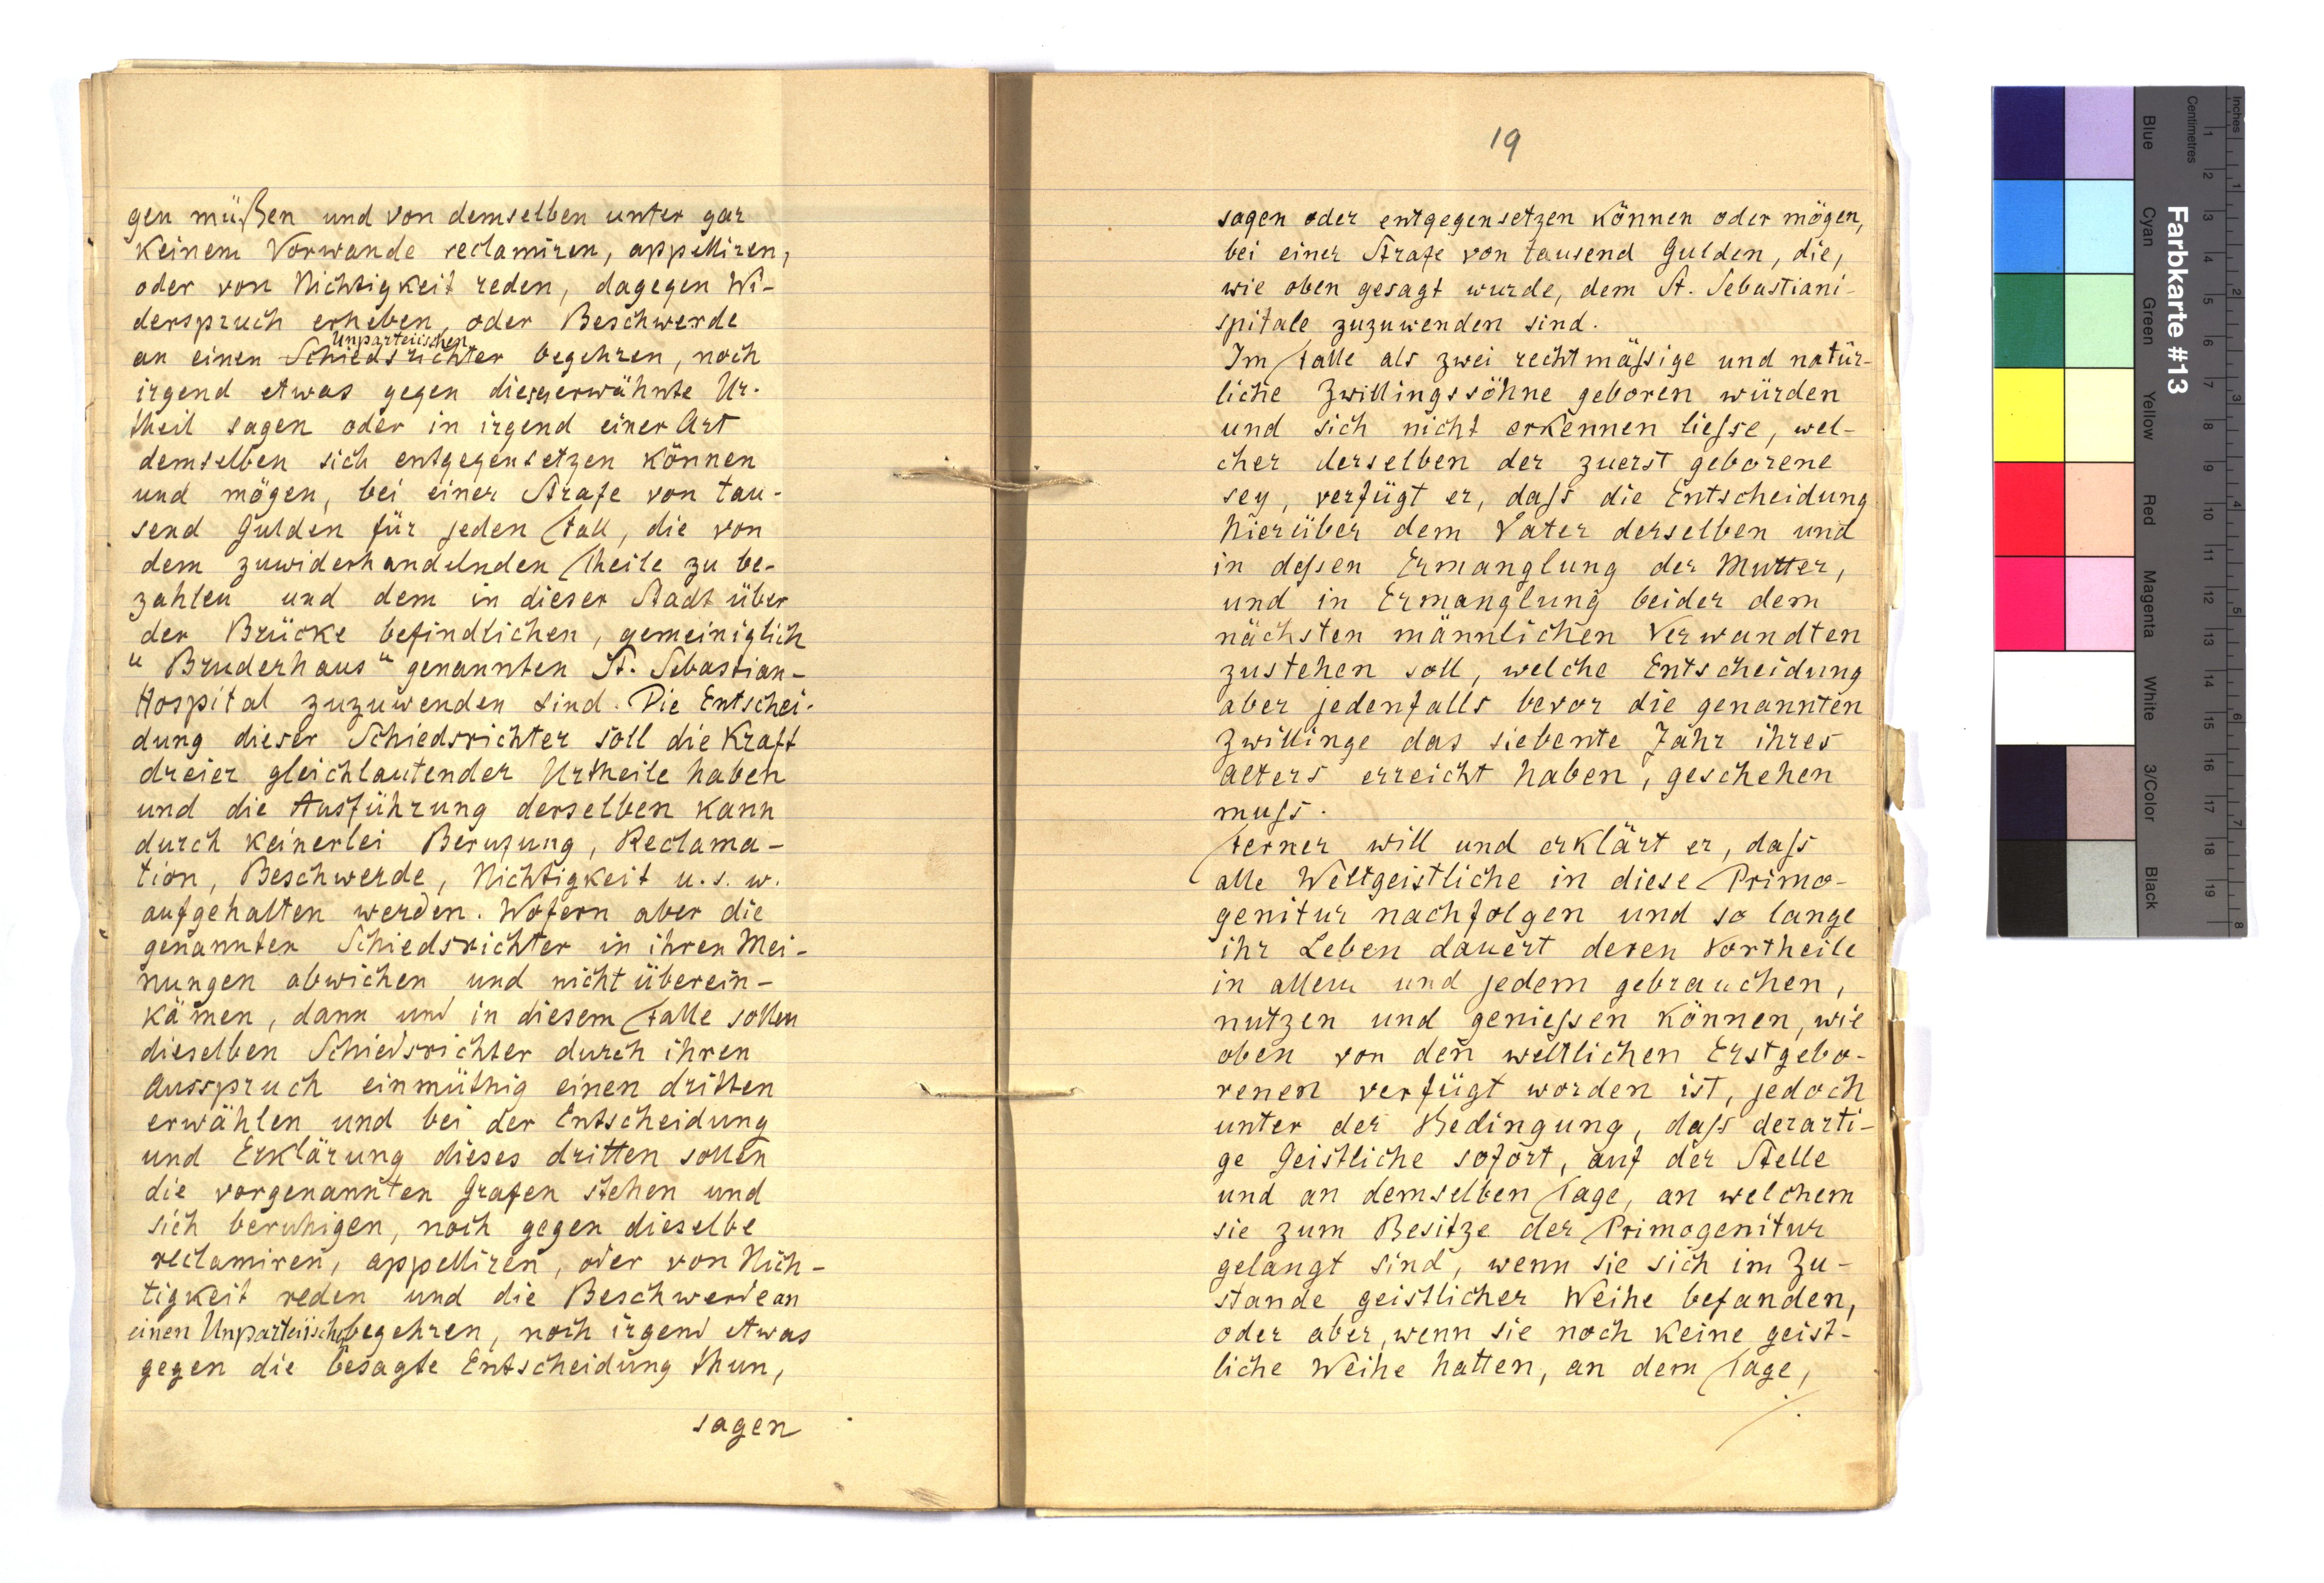 gen müßen und von demselben unter gar
keinem Vorwande reclamiren, appelliren,
oder von Nichtigkeit reden, dagegen Wi-
derspruch erheben, oder Beschwerde
Unparteiischen
an einen Schiedsrichter begehren, noch
irgend etwas gegen dieserwähnte Ur-
theil sagen oder in irgend einer Art
demselben sich entgegensetzen können
und mögen, bei einer Strafe von tau-
send Gulden für jeden Fall, die von
dem zuwiderhandelnden Theile zu be-
zahlen und dem in dieser Stadt über
der Brücke befindlichen, gemeiniglich
"Bruderhaus" genannten St. Sebastian-
Hospital zuzuwenden sind. Die Entschei-
dung dieser Schiedsrichter soll die Kraft
dreier gleichlautender Urtheile haben
und die Ausführung derselben kann
durch keinerlei Berufung, Reclama-
tion, Beschwerde, Nichtigkeit u. s. w.
aufgehalten werden. Wofern aber die
genannten Schiedsrichter in ihren Mei-
nungen abwichen und nicht überein-
kämen, dann und in diesem Falle sollen
dieselben Schiedsrichter durch ihren
Ausspruch einmüthig einen dritten
erwählen und bei der Entscheidung
und Erklärung dieses dritten sollen
die vorgenannten Grafen stehen und
sich beruhigen, noch gegen dieselbe
reclamiren, appelliren, oder von Nich-
tigkeit reden und die Beschwerde an
einen Unparteiischen begehren, noch irgend etwas
gegen die besagte Entscheidung thun,
sagen
19
sagen oder entgegensetzen können oder mögen,
bei einer Strafe von tausend Gulden, die,
wie oben gesagt wurde, dem St. Sebastiani-
spitale zuzuwenden sind.
Im Falle als zwei rechtmäßige und natür-
liche Zwillingssöhne geboren würden
und sich nicht erkennen liesse, wel-
cher derselben der zuerst geborene
sey, verfügt er, daß die Entscheidung
hierüber dem Vater derselben und
in deßen Ermanglung der Mutter,
und in Ermanglung beider dem
nächsten männlichen Verwandten
zustehen soll, welche Entscheidung
aber jedenfalls bevor die genannten
Zwillinge das siebente Jahr ihres
Alters erreicht haben, geschehen
muß.
Ferner will und erklärt er, daß
alle Weltgeistliche in diese Primo-
genitur nachfolgen und so lange
ihr Leben dauert deren Vortheile
in allem und jedem gebrauchen,
nutzen und genießen können, wie
oben von den weltlichen Erstgebo-
renen verfügt worden ist, jedoch
unter der Bedingung, daß derarti-
ge Geistliche sofort, auf der Stelle
und an demselben Tage, an welchem
sie zum Besitze der Primogenitur
gelangt sind, wenn sie sich im Zu-
stande geistlicher Weihe befanden,
oder aber, wenn sie noch keine geist-
liche Weihe hatten, an dem Tage,
./.
Farbkarte #13
Inches
Centimetres
Blue
Cyan
Green
Yellow
Red
Magenta
White
3/Color
Black
1 2 3 4 5 6 7 8 9 10 11 12 13 14 15 16 17 18 19
1 2 3 4 5 6 7 8